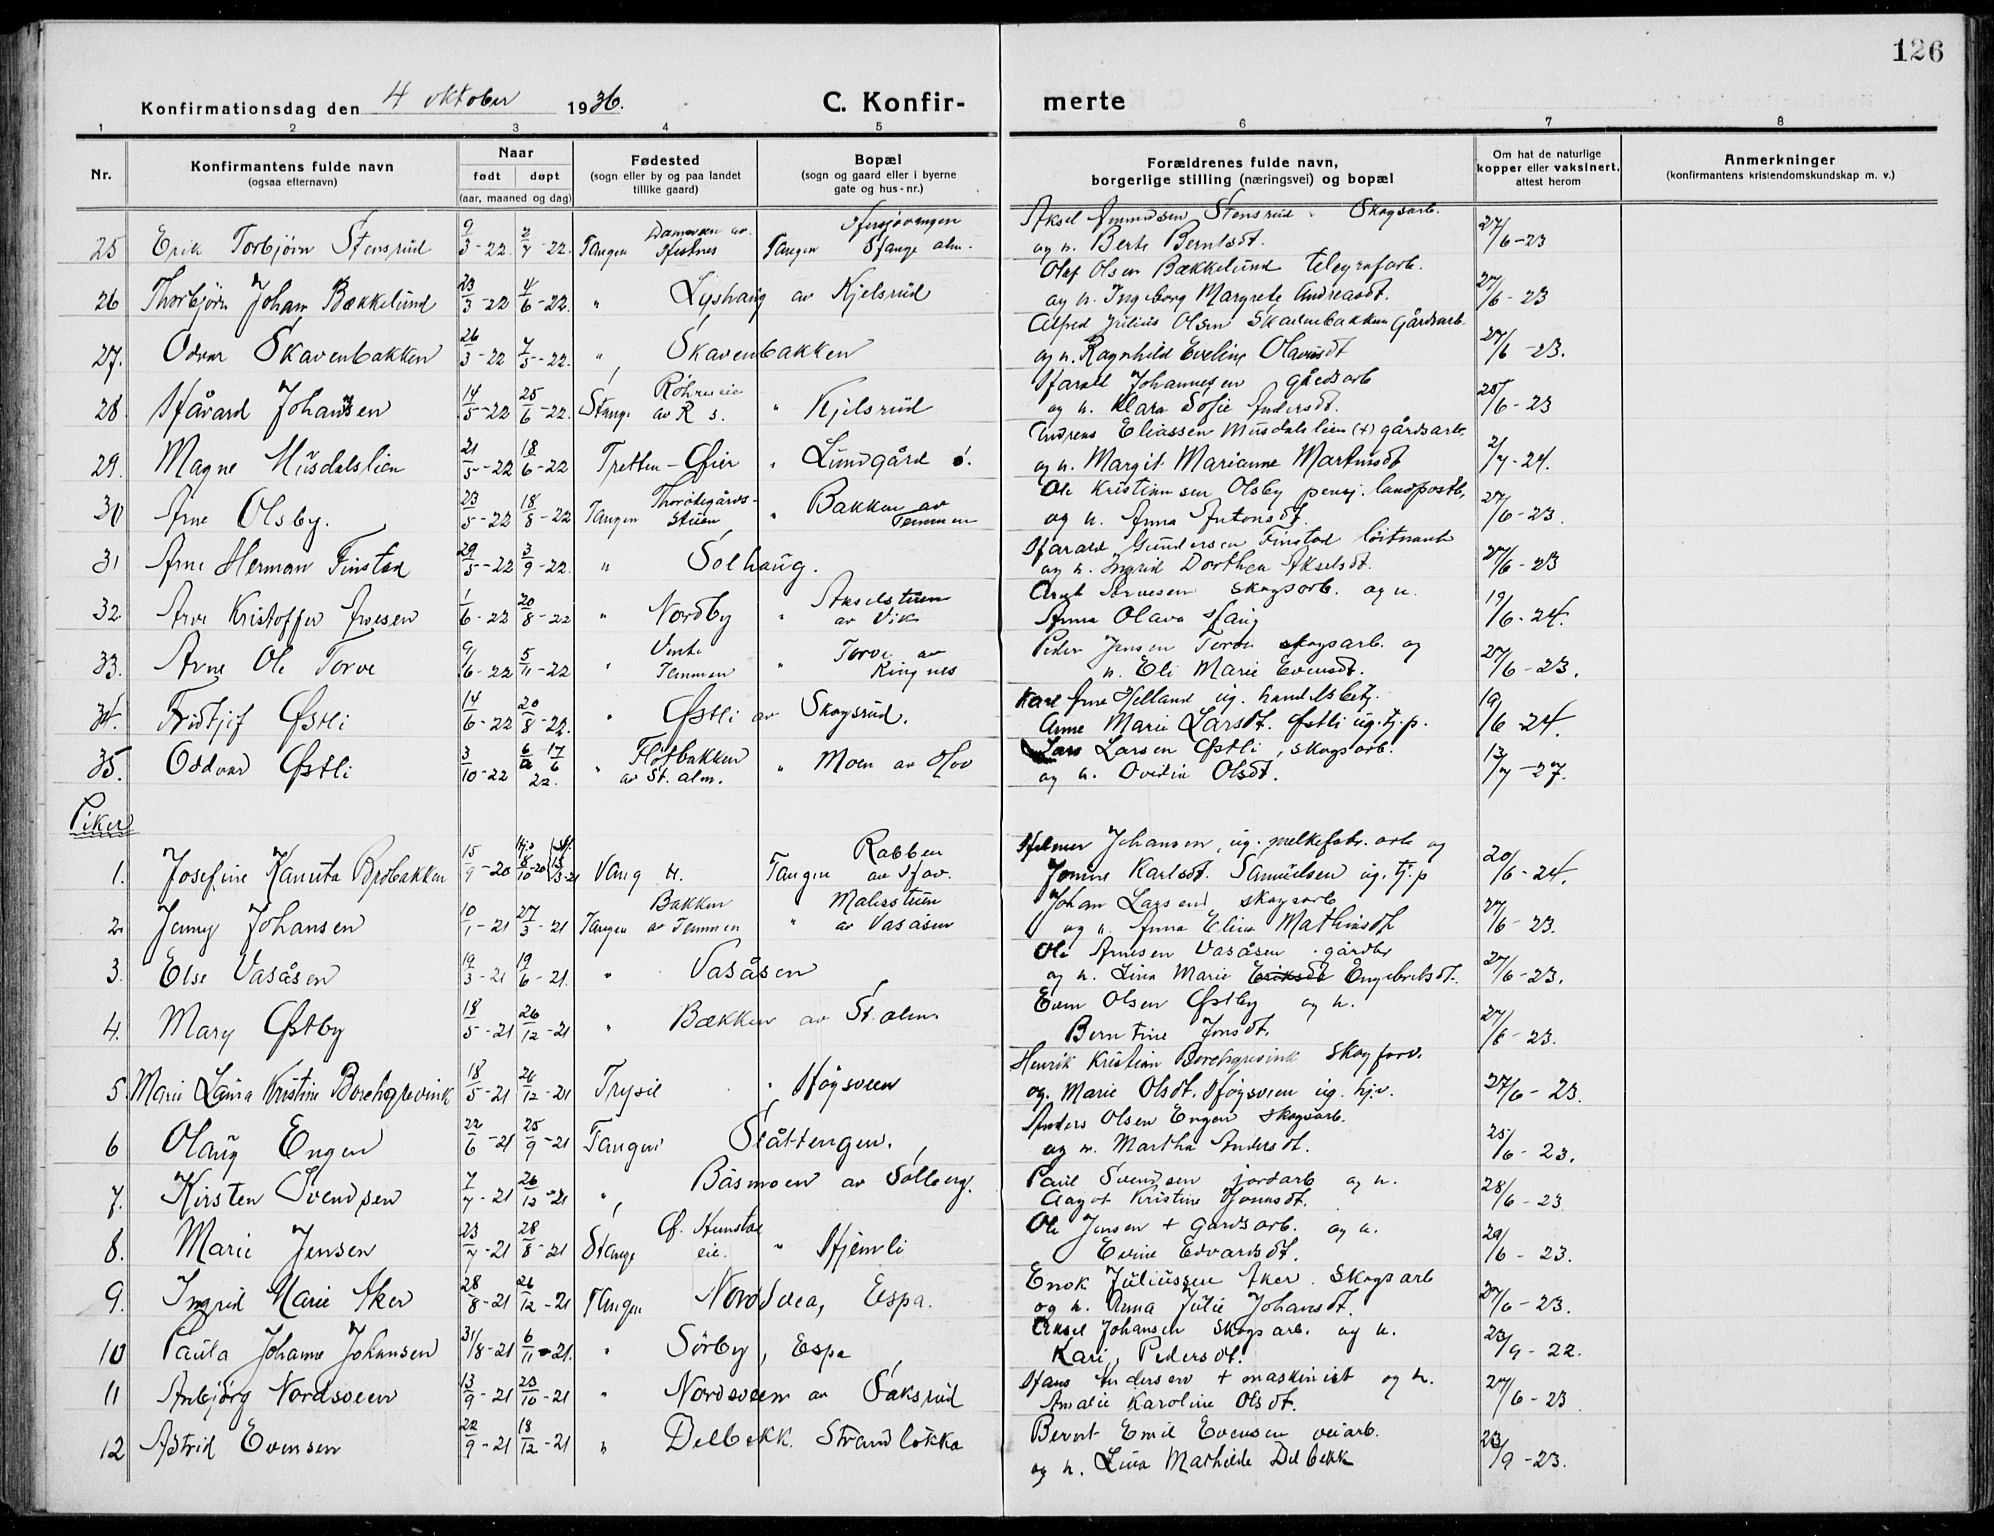 126
Konfirmationsdag den 4 oktober 1936. C. Konfir- merte
1 2 3 4 5 6 7 8
Nr. Konfirmantens fulde navn (ogsaa efternavn) Naar født døpt (aar, maaned og dag) Fødested (sogn eller by og paa landet tillike gaard) Bopæl (sogn og gaard eller i byerne gate og hus-nr.) Forældrenes fulde navn, borgerlige stilling (næringsvei) og bopæl Om hat de naturlige kopper eller vaksinert, attest herom Anmerkninger (konfirmantens kristendomskundskap m. v.)
25 Erik Torbjørn Stensrud 9/3-22 2/7-22. Tangen Tangen Stange alm. Aksel Amundsen Stensrud Skogsarb.
og h. Berte Berntsdt. 27/6-23
26 Thorbjørn Johan Bækkelund 23/3-22 4/6-22. " Lyshaug av Kjelsrud Olaf Olsen Bækkelund telegrafarb.
og h. Ingeborg Margrete Andreasdt. 27/6-23
27. Odvar Skavenbakken 26/3-22 7/5-22. " Skavenbakken Alfred Julius Olsen Skavenbakken Gårdsarb.
og h. Ragnhild Eveline Olavusdt 27/6-23.
28 Håvard Johansen 14/5-22 25/6-22. Stange av R s. " Kjelsrud Harald Johannesen gårdsarb
og h. Klara Sofie Andersdt. 28/6-23
29. Magne Musdalslien 21/5-22 18/6-22 Tretten-Øier " Lundgård ø. Andreas Eliassen Musdalslien (+) gårdsarb.
og h. Margit Marianne Martinsdt 2/7-24.
30 Arne Olsby. 23/5-22 18/8-22 Tangen Thorødegårds-stuen " Bakken av Temmen Ole Kristiansen Olsby pensj. landpostb.
og h. Anna Antonsdt. 27/6-23.
31 Arne Herman Finstad 29/5-22 3/9-22. " Solhaug. Harald Gundersen Finstad løitnant
og h. Ingrid Dorthea Akselsdt. 27/6-23
32. Arve Kristoffer Arvesen 1/6-22 20/8-22 " Nordby " Akselstuen av Vik Arvesen skogsarb. og h.
Anna Olava Haug 19/6-24.
33. Arne Ole Torve 9/6-22 5/11-22 " Temmen " Torve av Ringnes Peder Jensen Torve skogsarb. og
h. Eli Marie Evensdt. 27/6-23.
34. Fridtjof Østli 14/6-22 20/8-22. " Østli av Skogsrud. Karl Arne Helland ug. handelsbetj.
Anne Marie Larsdt. Østli ug. tj.p. 19/6 24.
35. Oddvar Østli 3/10-22 17/6 22. " Fløtbakken av St. alm. " Moen av Hov Lars Larsen Østli, skogsarb.
og h. Ovidia Olsdt. 13/7-27.
Piker
1. Josefine Kanuta Brobakken 15/9-20 Vang H. Tangen Rabben av Hov. Hilmer Johansen, ug. melkefabr. arb og
Jonine Karlsdt. Samuelsen ug. tj.p 20/6-24.
2. Jenny Johansen 10/1-21 27/3-21 Tangen Bakken av Temmen " Malisstuen av Vasåsen Johan Larsen skogsarb
og h. Anna Elise Mathisdt 27/6-23.
3. Else Vasåsen 19/3-21 19/6-21. " Vasåsen Ole Arnesen Vasåsen gårdbr
og h. Lina Marie Eriksdt Engebretsdt. 27/6-23.
4. Mary Østby 18/5-21 26/12-21 " Bækken av St. alm. Even Olsen Østby og h.
Berntine Jonsdt. 27/6-23.
5 Marie Laura Kristine Borchgrevink 18/5-21 26/12-21 Trysil " Høgsveen Henrik Kristian Borchgrevink Skogforv.
og. Marie Olsdt. Høgsveen ug. hjv. 27/6-23.
6 Olaug Engen 22/6-21 25/9-21 Tangen Slåttengen. Anders Olsen Engen skogsarb.
og h. Martha Andersdt. 25/6-23.
7. Kirsten Svendsen 7/7-21 26/12-21 " Båsmoen av Solberg. Paul Svendsen jordarb og h.
Aagot Kristine Jonnsdt. 28/6-23
8. Marie Jensen 23/7-21 28/8-21 Stange eie. " Hjemli Ole Jensen + gårdsarb. og h.
Evine Edvardsdt. 29/6-23.
9. Ingrid Marie Aker 28/8-21 26/12-21 Tangen Nordsvea, Espa. Enok Juliussen Aker. Skogsarb
og h. Anna Julie Johansdt. 27/6-23.
10 Paula Johanne Johansen 31/8-21 6/11-21. " Sørby, Espa Aksel Johansen skogsarb. og h.
Kari, Pedersdt. 23/9-22.
11 Anbjørg Nordsveen 13/9-21 23/10-21 " Nordsveen av Saksrud Hans Andersen + maskinist og h.
Amalie Karoline Olsdt. 27/6-23
12 Astrid Evensen 22/9-21 18/12-21 " Delbekk. Strandløkka Bernt Emil Evensen veiarb.
og h. Lina Mathilde Delbekk 23/9-23.